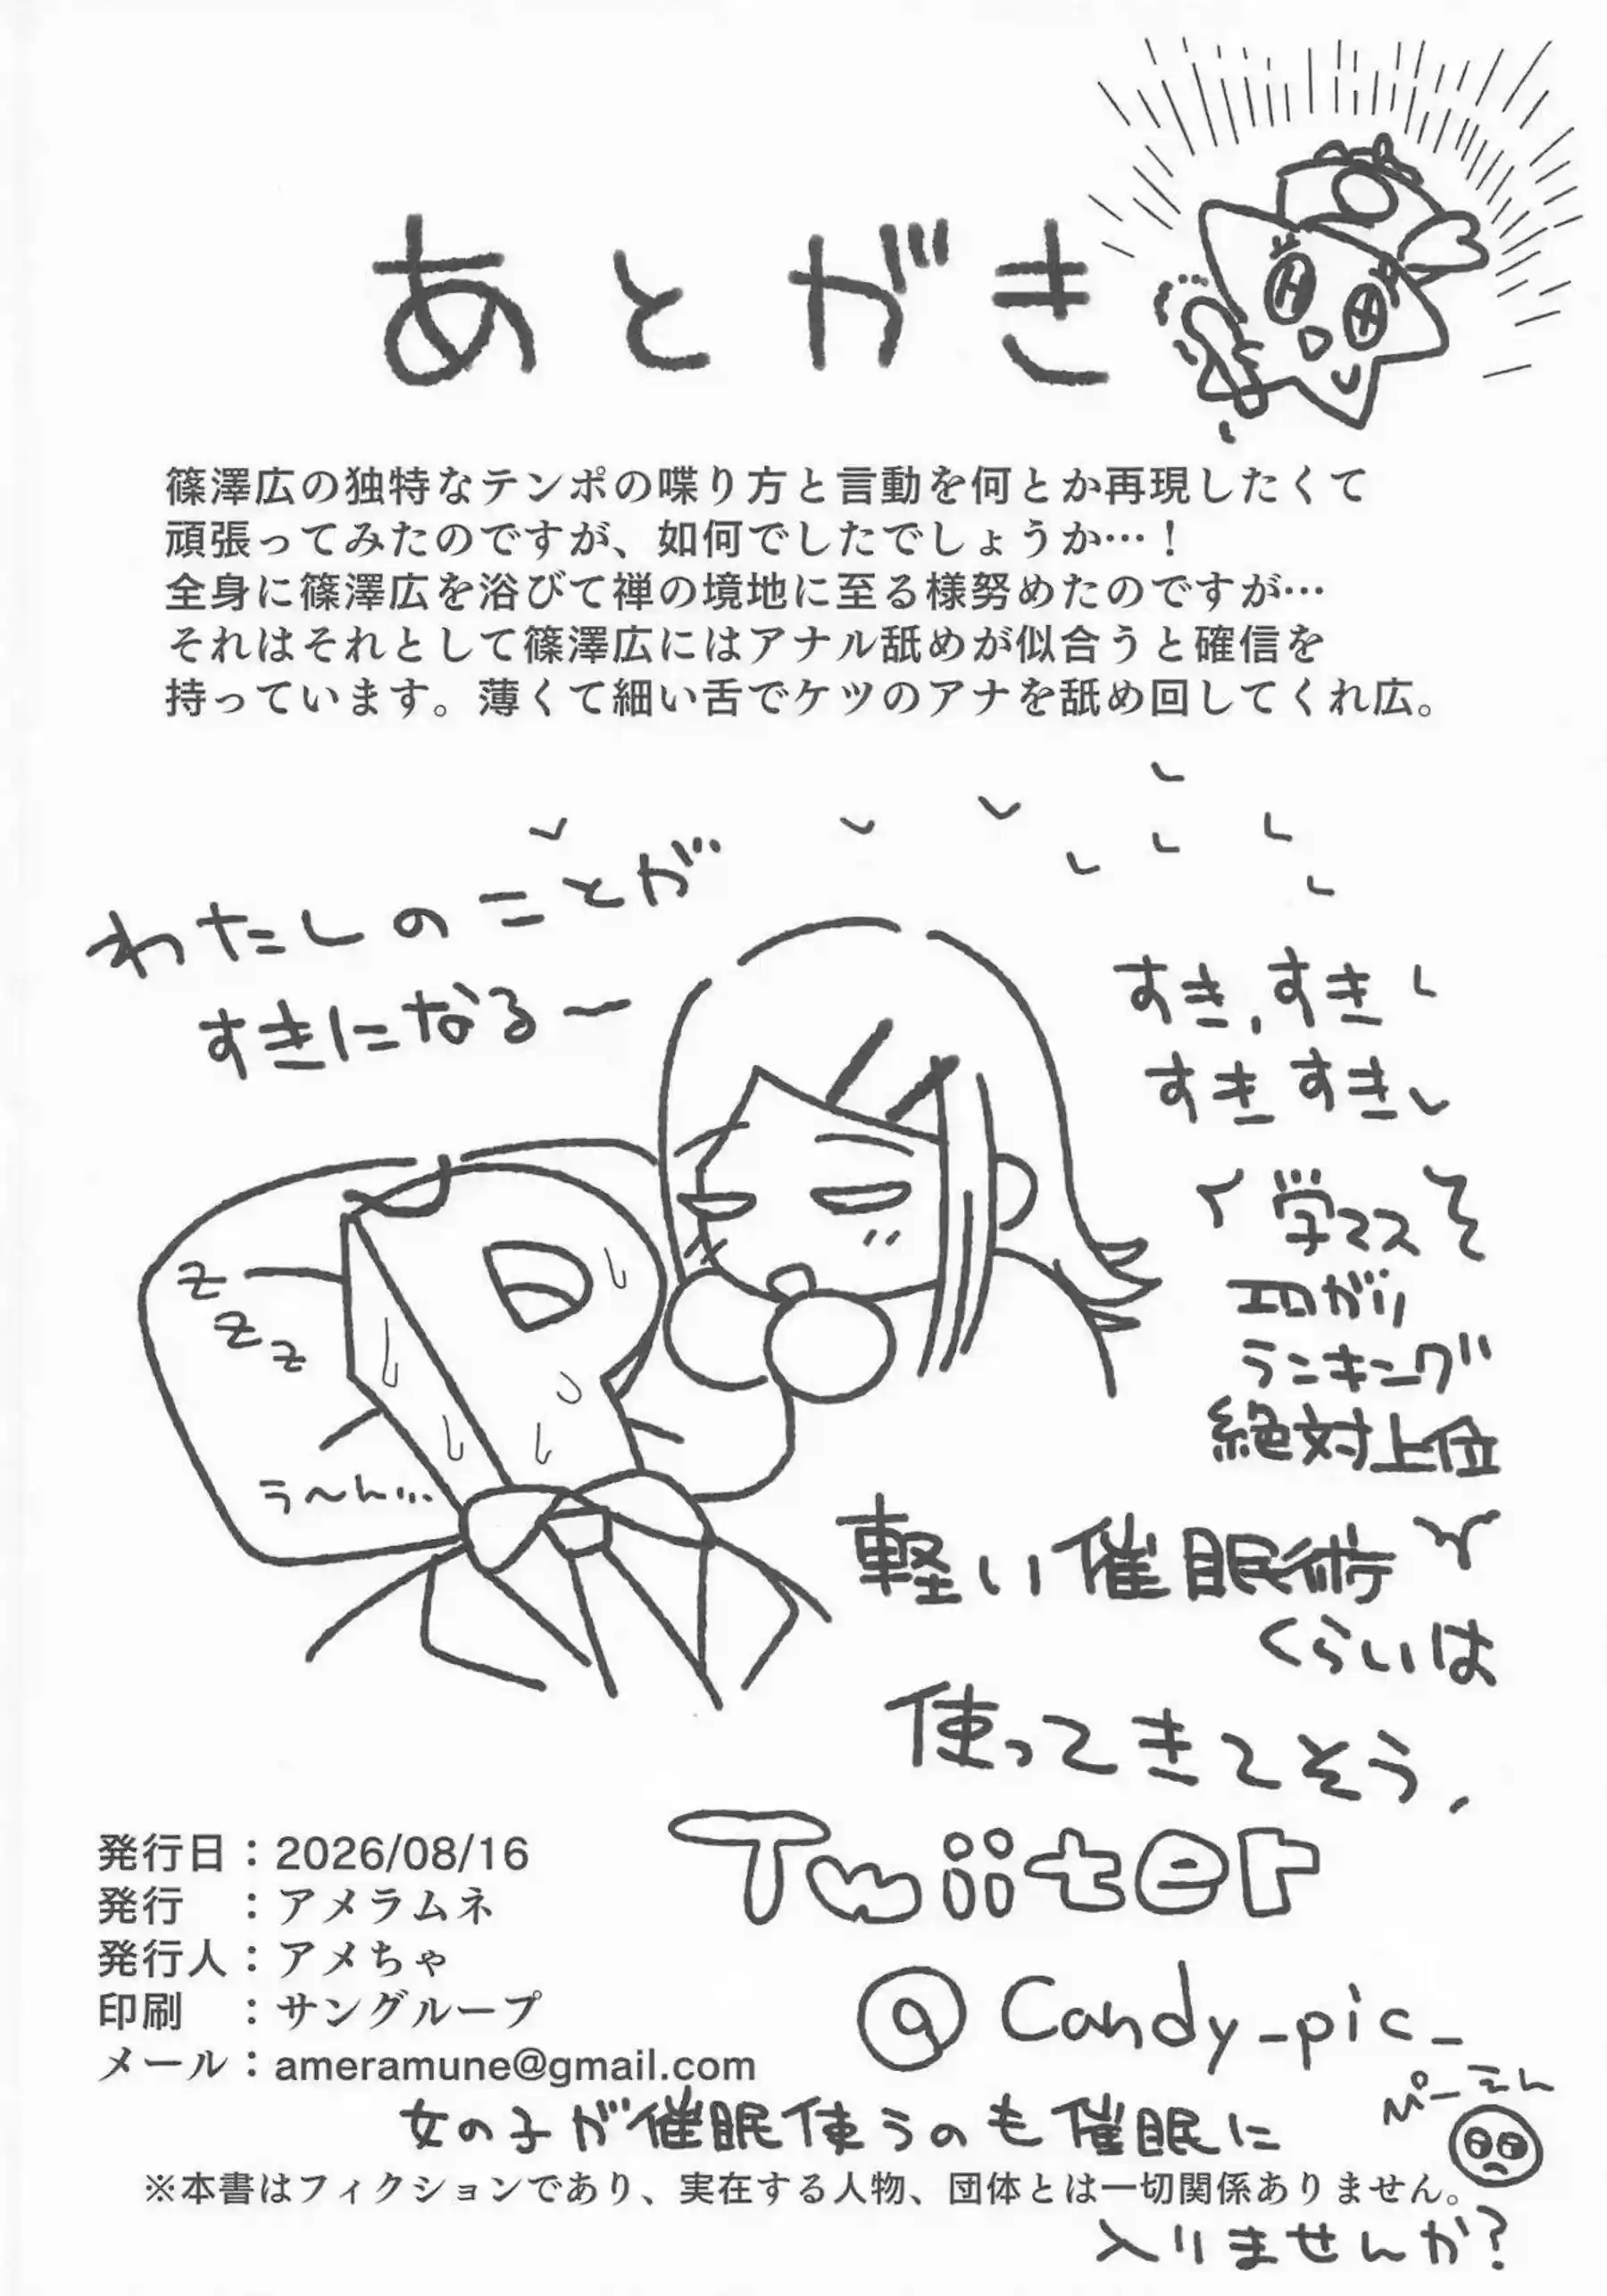 あとがき
篠澤広の独特なテンポの喋り方と言動を何とか再現したくて
頑張ってみたのですが、如何でしたでしょうか…！
全身に篠澤広を浴びて禅の境地に至る様努めたのですが…
それはそれとして篠澤広にはアナル舐めが似合うと確信を
持っています。薄くて細い舌でケツのアナを舐め回してくれ広。
わたしのことが
すきになる～
すき、すき
すきすき
学マス
エロがり
ランキング
絶対上位
z
z
z
う～ん…
軽い催眠術
くらいは
使ってきてそう、
発行日：2026/08/16
発行　：アメラムネ
発行人：アメちゃ
印刷　：サングループ
メール：ameramune@gmail.com
Twiiter
@Candy_pic_
ぴーえん
女の子が催眠使うのも催眠に
※本書はフィクションであり、実在する人物、団体とは一切関係ありません。
入りませんか?